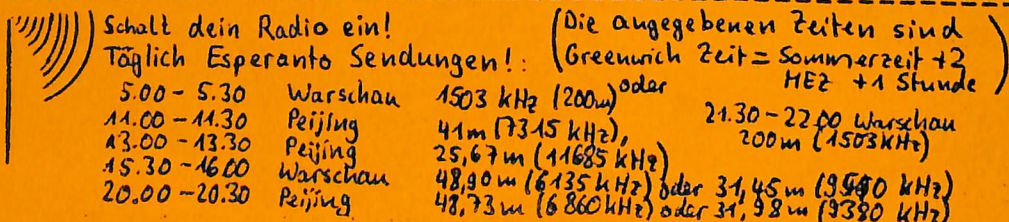 Schalt dein Radio ein!
Täglich Esperanto Sendungen!:
(Die angegebenen Zeiten sind
Greenwich Zeit = Sommerzeit +2
MEZ +1 Stunde)
5.00 - 5.30 Warschau 1503 kHz (200m) oder
11.00 - 11.30 Peijing 41m (7315 kHz),
13.00 - 13.30 Peijing 25,67m (11685 kHz)
15.30 - 16.00 Warschau 48,90m (6135 kHz) oder 31,45m kHz)
20.00 - 20.30 Peijing 48,73m (6860kHz) oder 31,98m (9380 kHz)
21.30 - 22.00 Warschau
200m (1503KHz)